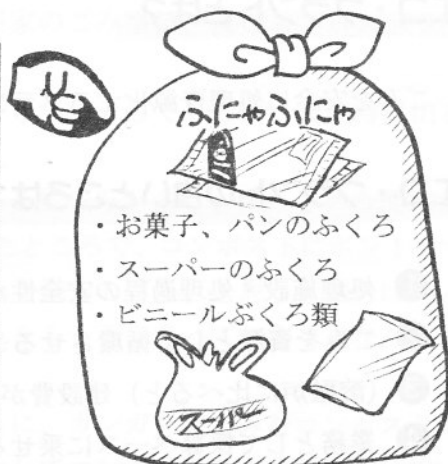 ふにゃふにゃ
・お菓子、パンのふくろ
・スーパーのふくろ
・ビニールぶくろ類
スーパー